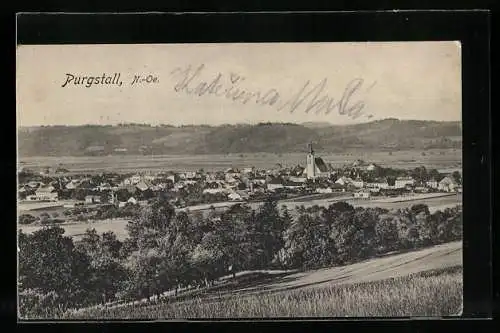 Purgstall, N.-Oe. Kateřina Malá